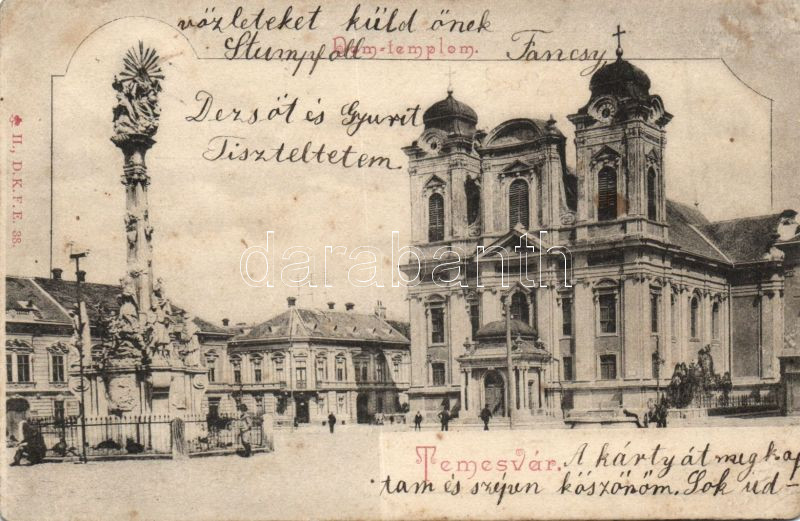 vözleteket küld önek
Stumpfoll Fancsy
Dom-templom.
Dezsőt és Gyurit
Tiszteltetem
II., D. K. F. E. 38.
darabanth.com
Temesvár.
A kártyát megkap-
tam és szépen köszönöm. Sok üd-